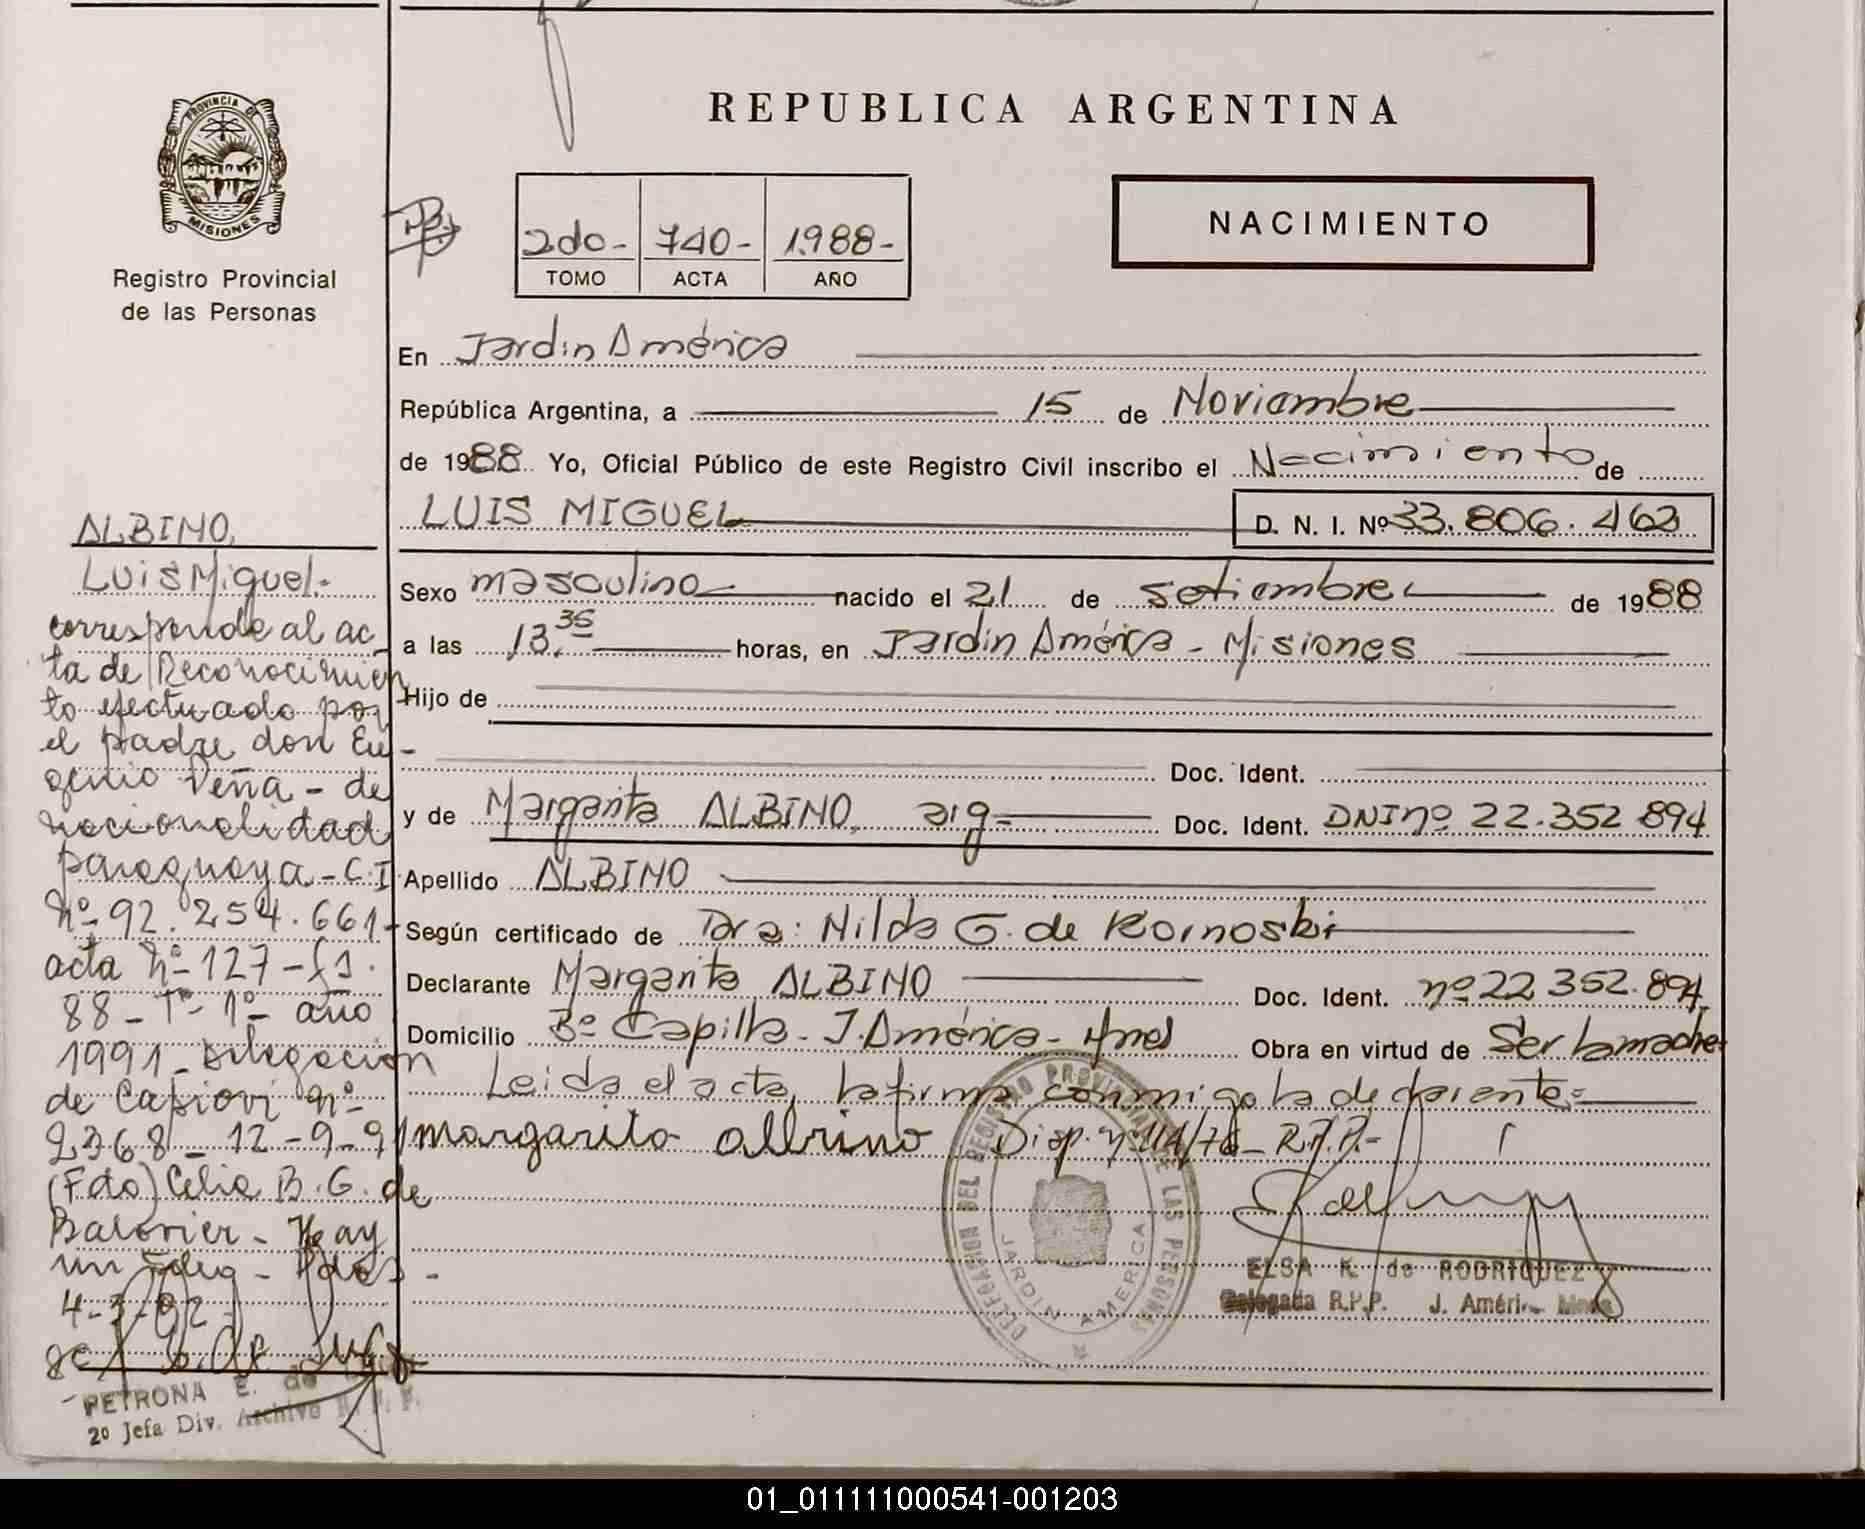 REPUBLICA ARGENTINA
PROVINCIA DE
MISIONES
Registro Provincial
de las Personas
2do- 740- 1.988-
TOMO ACTA AÑO
NACIMIENTO
En Jardin América
República Argentina, a 15 de Noviembre
de 1988 Yo, Oficial Público de este Registro Civil inscribo el Nacimiento de
LUIS MIGUEL D. N. I. Nº 33.806.462
Sexo masculino nacido el 21 de setiembre de 1988
a las 13.35 horas, en Jardin América - Misiones
Hijo de
Doc. Ident.
y de Margarita ALBINO, arg= Doc. Ident. DNI nº 22.352.894
Apellido ALBINO
Según certificado de Dra: Nilda G. de Kornoski
Declarante Margarita ALBINO Doc. Ident. nº 22.352.894
Domicilio Bº Capilla - J. América - Mnes Obra en virtud de Ser la madre
Leida el acta, la firma conmigo la declarante=
margarita albino Disp. nº 114/76 - R.P.P.-
DELEGACION DEL REGISTRO PROVINCIAL DE LAS PERSONAS
JARDIN AMERICA
ELSA K. de RODRIGUEZ
Delegada R.P.P. J. Améri
ALBINO,
Luis Miguel.
corresponde al ac
ta de Reconocimien
to efectuado por
el padre don Eu-
genio Peña - de
nacionalidad
paraguaya - C.I
nº 92.254.661-
acta nº 127 - f 1.
88 - Tº - 1º - año
1991 - Delegacion
de Capiovi nº
2368 - 12 - 9 - 91
(Fdo) Celia B. G. de
Balonier - Hay
un
4-3-92
PETRONA E. de
2º Jefa Div. Archivo R. P. P.
01_011111000541-001203